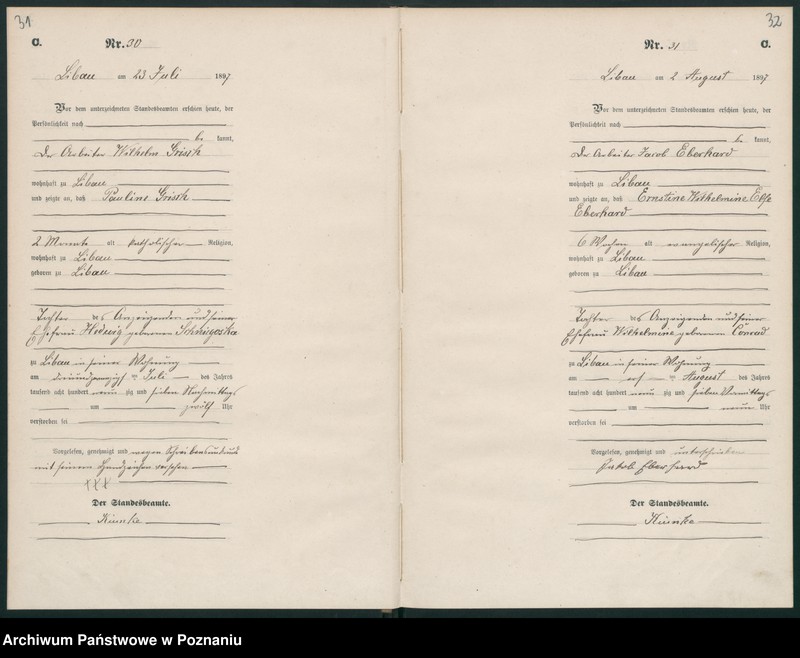 31
C.
Nr. 30
Libau am 23 Juli 1897
Vor dem unterzeichneten Standesbeamten erschien heute, der
Persönlichkeit nach
be kannt,
Der Arbeiter Wilhelm
wohnhaft zu Libau
und zeigte an, daß Pauline
2 Monate alt katholischer Religion,
wohnhaft zu Libau
geboren zu Libau
Tochter des Anzeigenden und seiner
Ehefrau Hedwig geborenen
zu Libau in seiner Wohnung
am dreiundzwanzigsten Juli des Jahres
tausend acht hundert neun zig und sieben Nachmittags
um zwölf Uhr
verstorben sei
Vorgelesen, genehmigt und wegen Schreibensunkunde
mit seinem Handzeichen versehen
XXX
Der Standesbeamte.
32
Nr. 31
C.
Libau am 2 August 1897
Vor dem unterzeichneten Standesbeamten erschien heute, der
Persönlichkeit nach
be kannt,
Der Arbeiter Jacob Eberhard
wohnhaft zu Libau
und zeigte an, daß Ernstine Wilhelmine Else
Eberhard
6 Wochen alt evangelischer Religion,
wohnhaft zu Libau
geboren zu Libau
Tochter des Anzeigenden und seiner
Ehefrau Wilhelmine geborenen Conrad
zu Libau in seiner Wohnung
am August des Jahres
tausend acht hundert neun zig und sieben Vormittags
um neun Uhr
verstorben sei
Vorgelesen, genehmigt und unterschrieben
Jakob Eberhard
Der Standesbeamte.
Archiwum Państwowe w Poznaniu